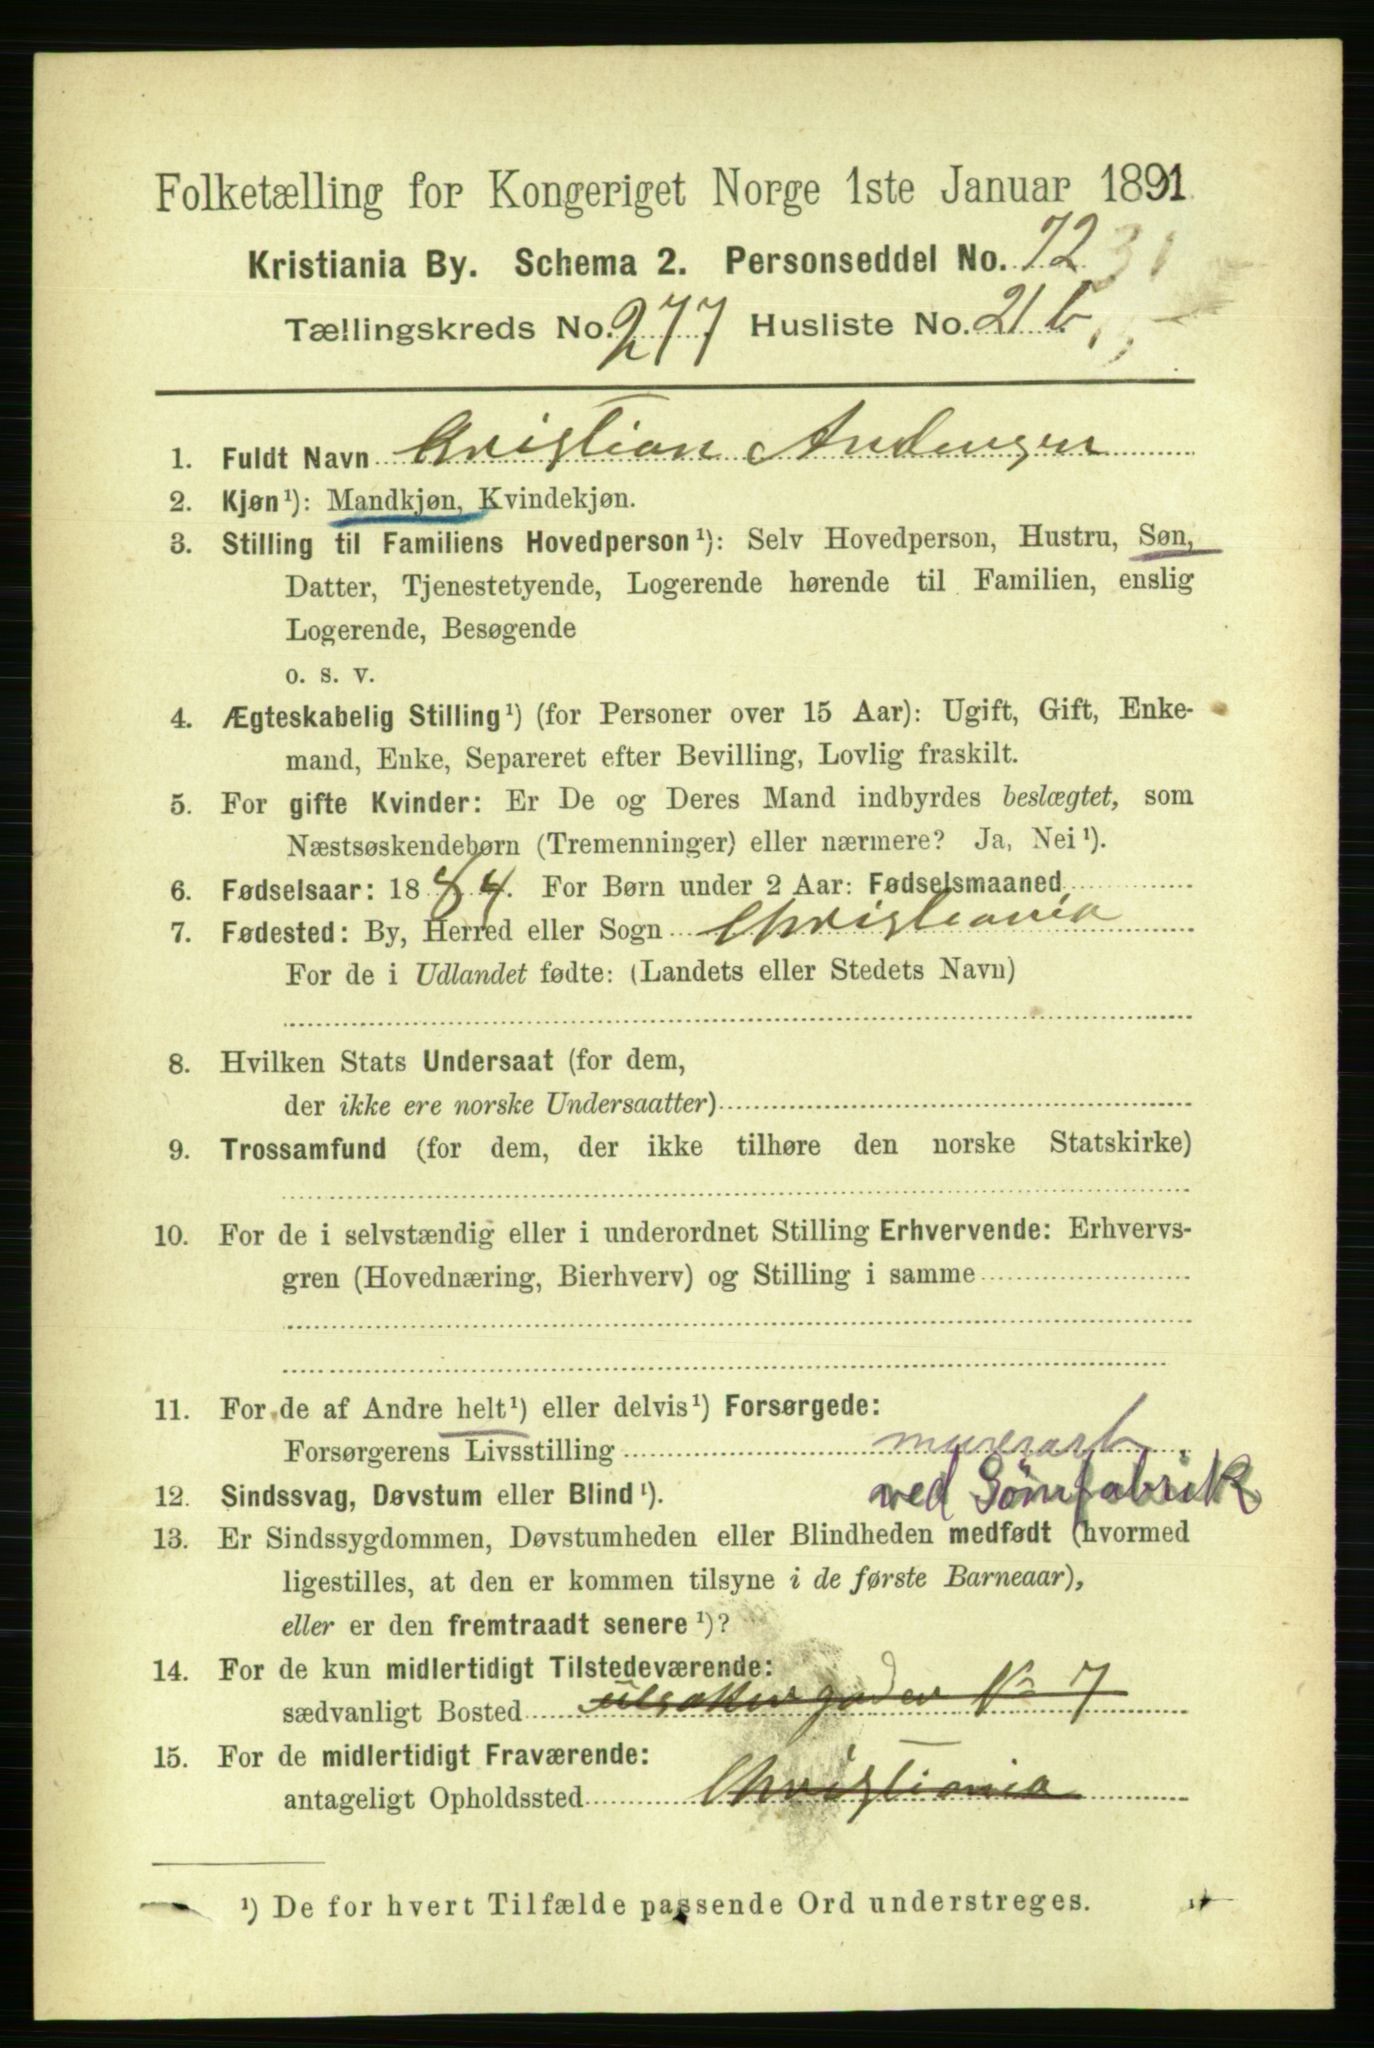 Folketælling for Kongeriget Norge 1ste Januar 1891
Kristiania By. Schema 2. Personseddel No. 72 31
Tællingskreds No. 277 Husliste No. 21 b
1. Fuldt Navn Christian Andersen
2. Kjøn¹): Mandkjøn, Kvindekjøn.
3. Stilling til Familiens Hovedperson¹): Selv Hovedperson, Hustru, Søn,
Datter, Tjenestetyende, Logerende hørende til Familien, enslig
Logerende, Besøgende
o. s. v.
4. Ægteskabelig Stilling¹) (for Personer over 15 Aar): Ugift, Gift, Enke-
mand, Enke, Separeret efter Bevilling, Lovlig fraskilt.
5. For gifte Kvinder: Er De og Deres Mand indbyrdes beslægtet, som
Næstsøskendebørn (Tremenninger) eller nærmere? Ja, Nei¹).
6. Fødselsaar: 1884. For Børn under 2 Aar: Fødselsmaaned
7. Fødested: By, Herred eller Sogn Christiania
For de i Udlandet fødte: (Landets eller Stedets Navn)
8. Hvilken Stats Undersaat (for dem,
der ikke ere norske Undersaatter)
9. Trossamfund (for dem, der ikke tilhøre den norske Statskirke)
10. For de i selvstændig eller i underordnet Stilling Erhvervende: Erhvervs-
gren (Hovednæring, Bierhverv) og Stilling i samme
11. For de af Andre helt¹) eller delvis¹) Forsørgede:
Forsørgerens Livsstilling murerarb.
ved Sømfabrik
12. Sindssvag, Døvstum eller Blind¹).
13. Er Sindssygdommen, Døvstumheden eller Blindheden medfødt (hvormed
ligestilles, at den er kommen tilsyne i de første Barneaar),
eller er den fremtraadt senere¹)?
14. For de kun midlertidigt Tilstedeværende:
sædvanligt Bosted gaden No 7
15. For de midlertidigt Fraværende:
antageligt Opholdssted Christiania
¹) De for hvert Tilfælde passende Ord understreges.